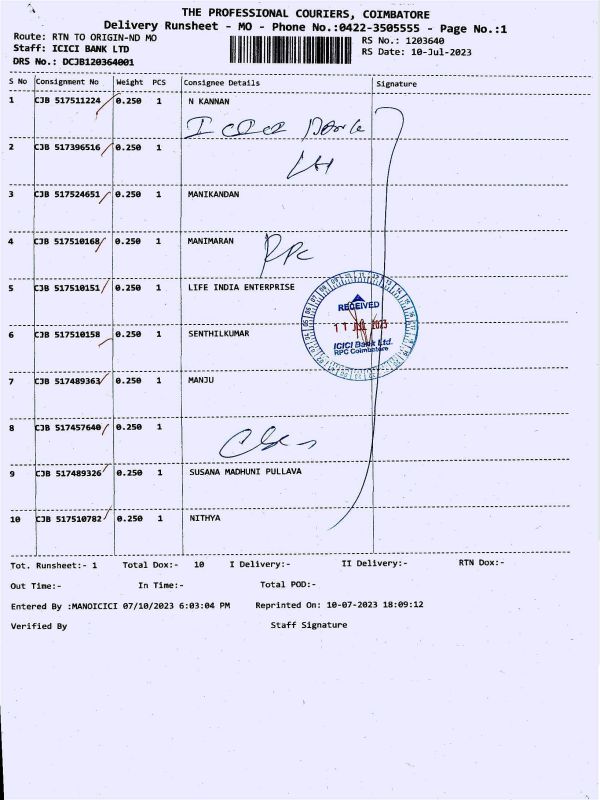 THE PROFESSIONAL COURIERS, COIMBATORE
Delivery Runsheet - MO - Phone No.:0422-3505555 - Page No.:1
Route: RTN TO ORIGIN-ND MO
RS No.: 1203640
Staff: ICICI BANK LTD
RS Date: 10-Jul-2023
DRS No.: DCJB120364001
S No Consignment No Weight PCS Consignee Details Signature
1 CJB 517511224 0.250 1 N KANNAN
ICICI Bank
2 CJB 517396516 0.250 1
Ltd
3 CJB 517524651 0.250 1 MANIKANDAN
4 CJB 517510168 0.250 1 MANIMARAN
RPC
5 CJB 517510151 0.250 1 LIFE INDIA ENTERPRISE
RECEIVED
11 JUL 2023
6 CJB 517510158 0.250 1 SENTHILKUMAR
ICICI Bank Ltd.
RPC Coimbatore
7 CJB 517489363 0.250 1 MANJU
8 CJB 517457640 0.250 1
9 CJB 517489326 0.250 1 SUSANA MADHUNI PULLAVA
10 CJB 517510782 0.250 1 NITHYA
Tot. Runsheet:- 1 Total Dox:- 10 I Delivery:- II Delivery:- RTN Dox:-
Out Time:- In Time:- Total POD:-
Entered By :MANOICICI 07/10/2023 6:03:04 PM Reprinted On: 10-07-2023 18:09:12
Verified By Staff Signature